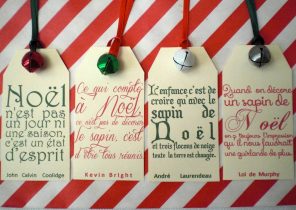 Noël
n'est pas
un jour ni
une saison,
c'est un état
d'esprit
John Calvin Coolidge
Ce qui compte
à Noël,
ce n'est pas de décorer
le sapin, c'est
d'être tous réunis.
Kevin Bright
L'enfance c'est de
croire qu'avec le
sapin de
Noël
et trois flocons de neige
toute la terre est changée.
André Laurendeau
Quand on décore
un sapin de
Noël
on a toujours l'impression
qu'il nous faudrait
une guirlande de plus
Loi de Murphy